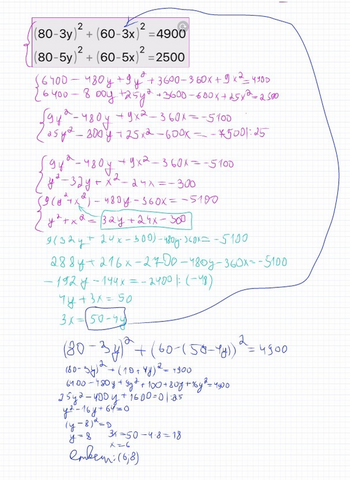 (80-3y)² + (60-3x)² =4900
(80-5y)² + (60-5x)² =2500
6400 - 480y + 9y² + 3600 - 360x + 9x² = 4900
6400 - 800y + 25y² + 3600 - 600x + 25x² = 2500
9y² - 480y + 9x² - 360x = -5100
25y² - 800y + 25x² - 600x = -7500 |:25
9y² - 480y + 9x² - 360x = -5100
y² - 32y + x² - 24x = -300
9(y² + x²) - 480y - 360x = -5100
y² + x² = 32y + 24x - 300
9(32y + 24x - 300) - 480y - 360x = -5100
288y + 216x - 2700 - 480y - 360x = -5100
-192y - 144x = -2400 |:(-48)
4y + 3x = 50
3x = 50 - 4y
(80 - 3y)² + (60 - (50 - 4y))² = 4900
(80 - 3y)² + (10 + 4y)² = 4900
6400 - 480y + 9y² + 100 + 80y + 16y² = 4900
25y² - 400y + 1600 = 0 |:25
y² - 16y + 64 = 0
(y - 8)² = 0
y = 8 3x = 50 - 4·8 = 18
x = 6
Ответ: (6,8)